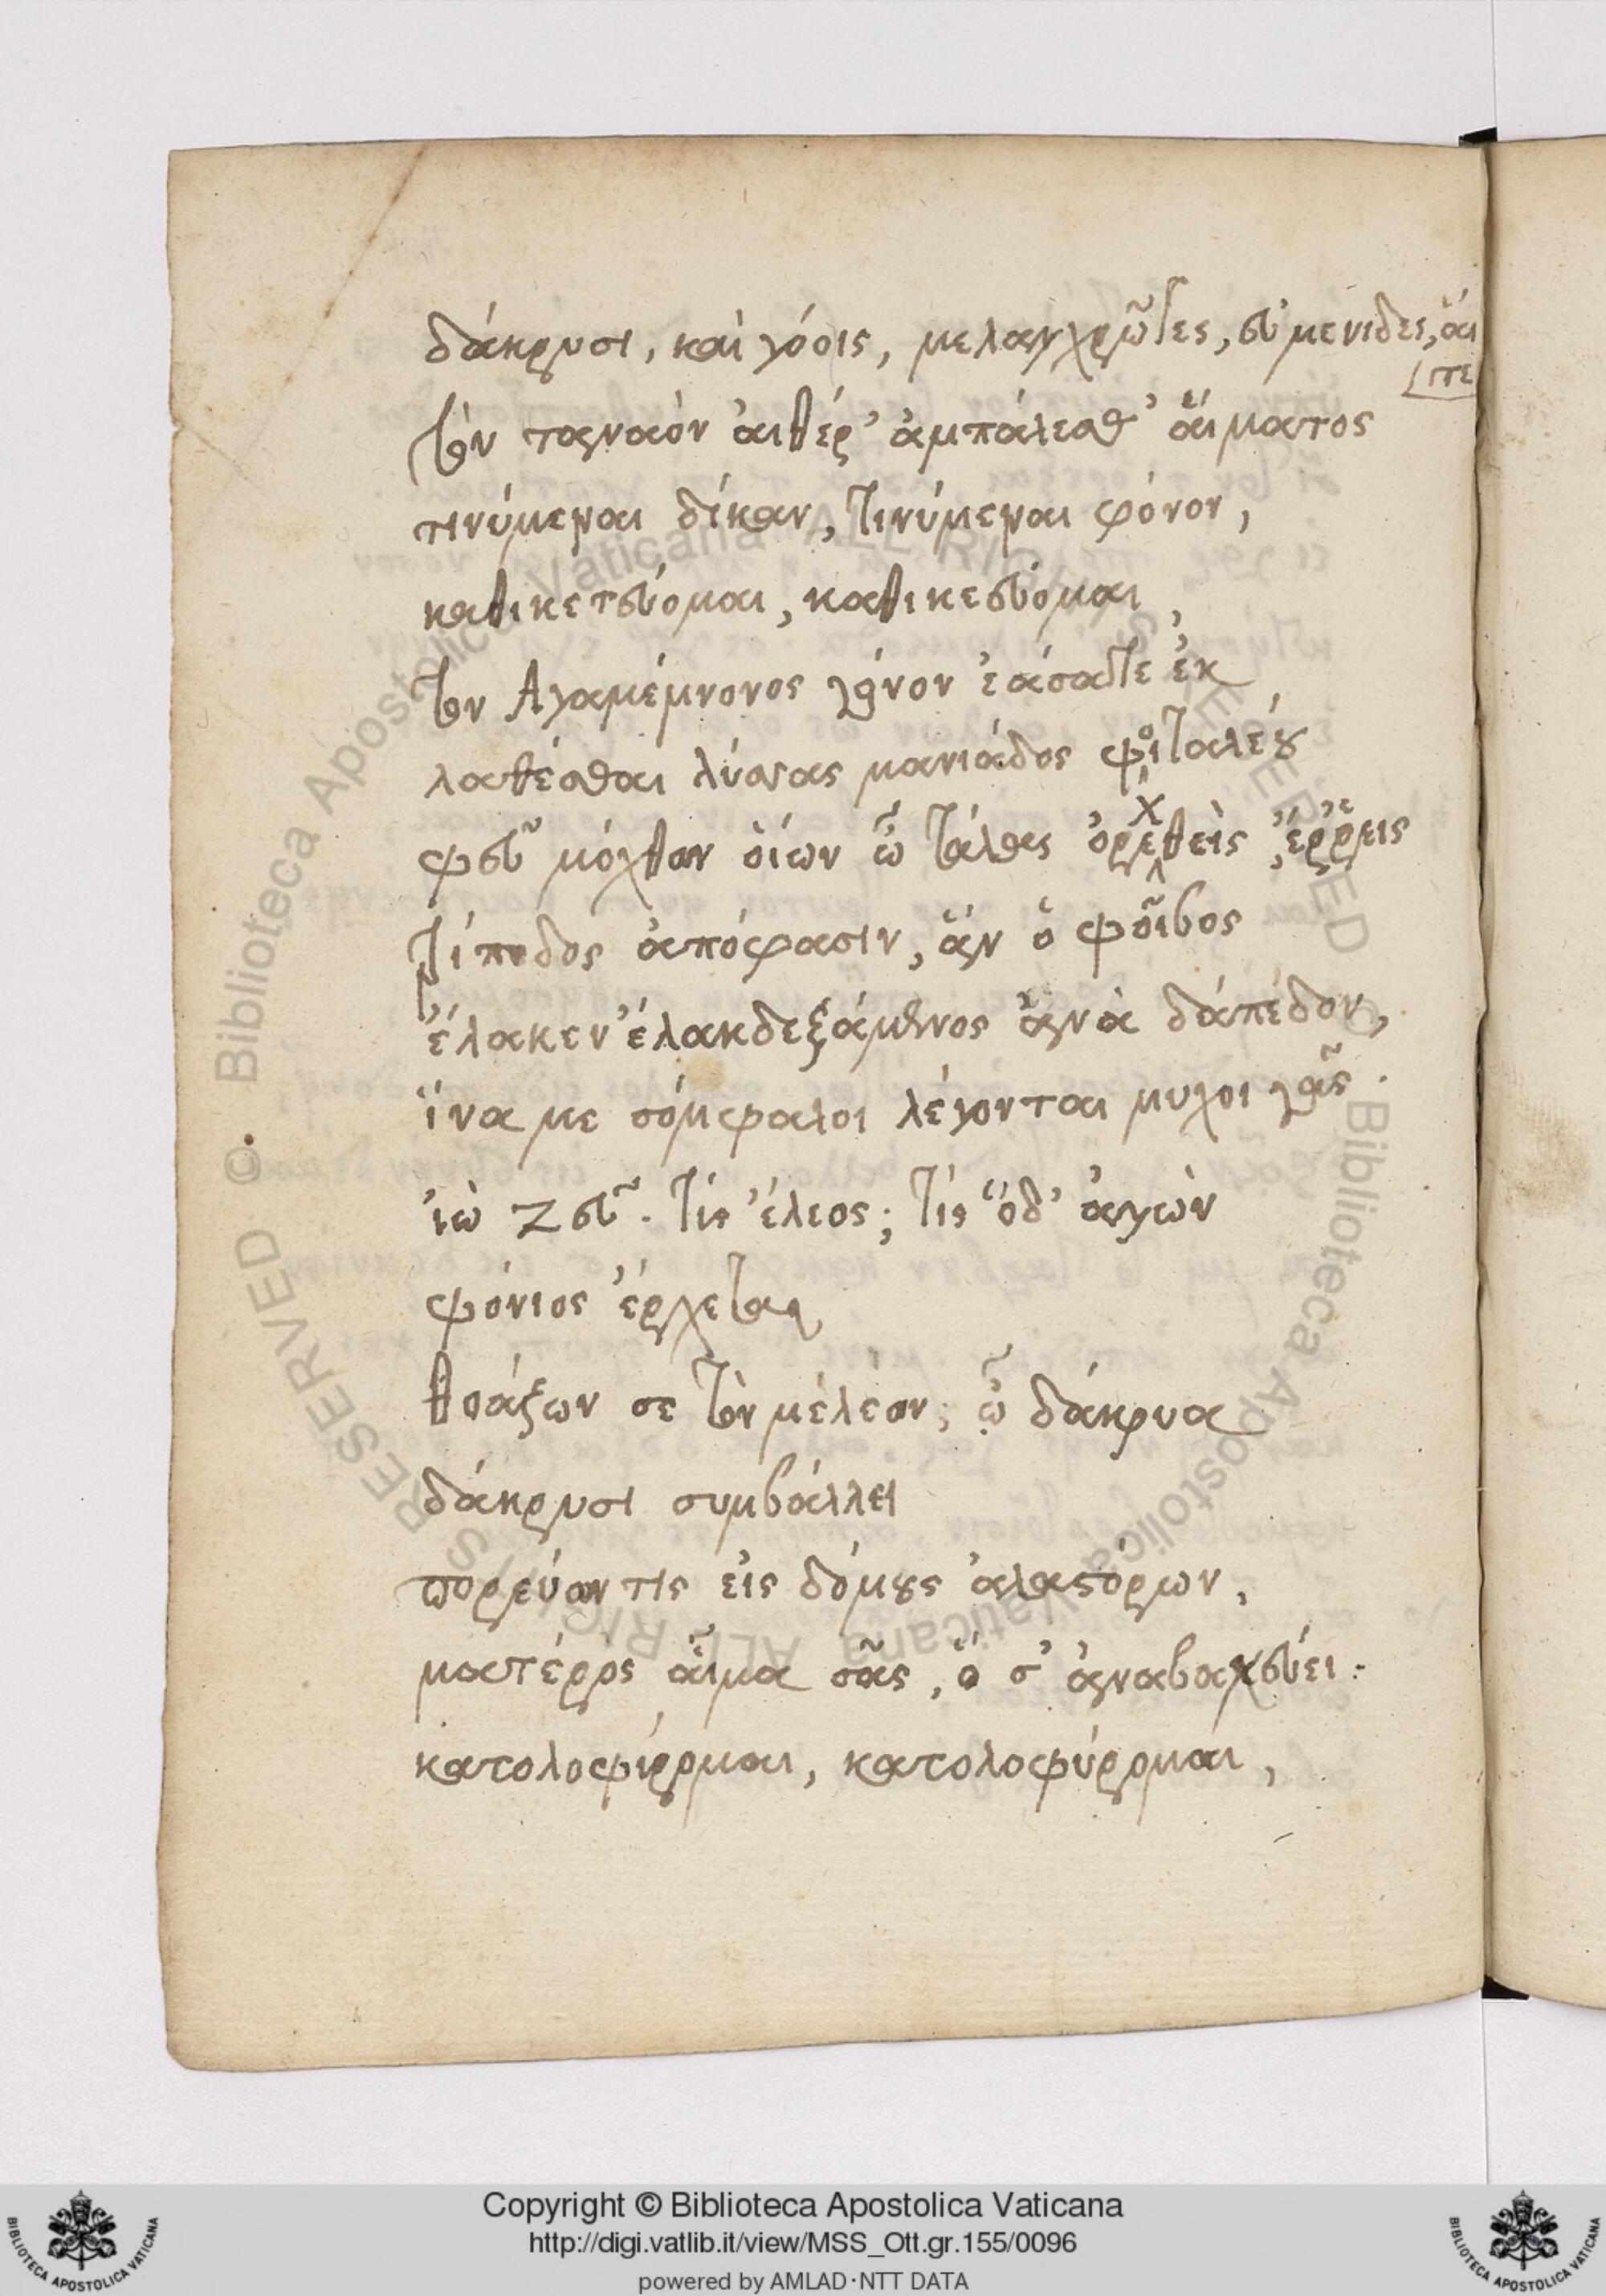 δάκρυσι, καὶ γόοις, μελαγχρῶτες, εὐμενίδες, ἅι
τε
τὸν ταναὸν ἀιθέρ' ἀμπάλεσθ' ἅιματος
τινύμεναι δίκαν, τινύμεναι φόνον,
καθικετεύομαι, καθικεσεύομαι,
τὸν Αγαμέμνονος γόνον ἐάσατε ἐκ
λαθέσθαι λύσσας μανιάδος φοιταλέου
φεῦ μόχθων ὁίων ὦ τάλας ὀρεχθεὶς ἔρρεις
τρίποδος ἀπόφασιν, ἃν ὁ φοῖβος
ἔλακεν ἔλακε δεξάμενος ἀνὰ δάπεδον,
ἵνα μεσόμφαλοι λέγονται μυχοι γᾶς.
ἰὼ Ζεῦ. τίς ἔλεος; τίς ὅδ' ἀγὼν
φόνιος ἔρχεται
θοάζων σε τὸν μέλεον; ὧ δάκρυα
δάκρυσι συμβάλλει
πορεύων τις εἰς δόμους ἀλαστόρων,
ματέρος ἇιμα σᾶς, ὅ σ' ἀναβακχεύει.
κατολοφύρομαι, κατολοφύρομαι,
Copyright © Biblioteca Apostolica Vaticana
http://digi.vatlib.it/view/MSS_Ott.gr.155/0096
powered by AMLAD·NTT DATA
BIBLIOTECA APOSTOLICA VATICANA
BIBLIOTECA APOSTOLICA VATICANA